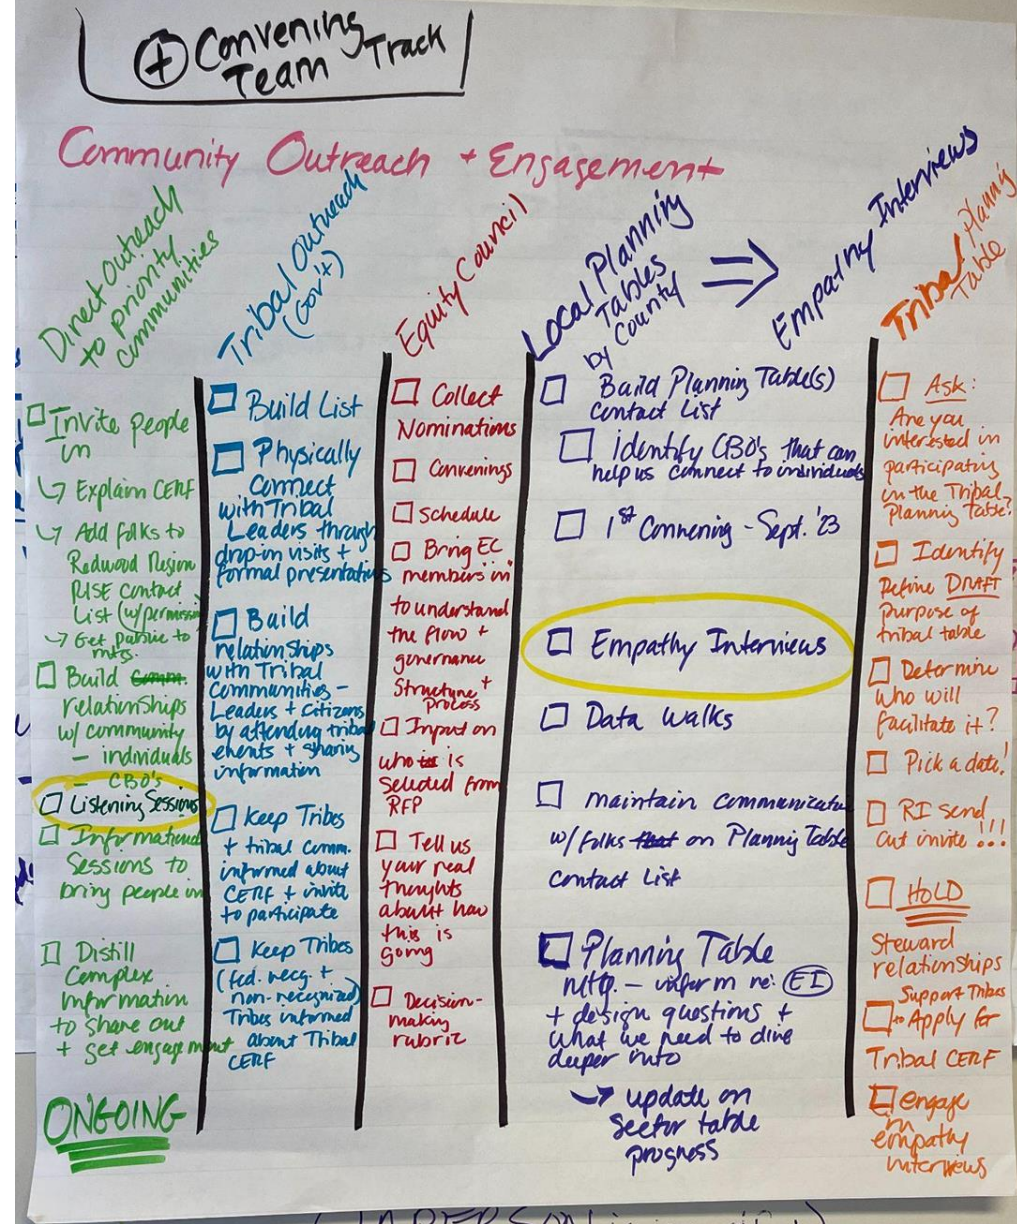 + Convening
Team Track
Community Outreach + Engagement
Direct Outreach
to priority
communities
Invite people
in
↳ Explain CERF
↳ Add folks to
Redwood Region
RISE contact
List (w/permission
→ Get to
mtgs.
Build Comm.
relationships
w/ community
– individuals
– CBO's
Listening Sessions
Informational
Sessions to
bring people in
Distill
Complex
information
to share out
+ get engagement
ONGOING
Tribal Outreach
(Gov't)
Build List
Physically
Connect
with Tribal
Leaders through
drop-in visits +
formal presentations
Build
relationships
with Tribal
Communities –
Leaders + Citizens
by attending tribal
events + sharing
information
Keep Tribes
+ tribal comm.
informed about
CERF + invite
to participate
Keep Tribes
(fed. recg. +
non-recognized)
Tribes informed
about Tribal
CERF
Equity Council
Collect
Nominations
Convenings
Schedule
Bring EC
members "in"
to understand
the flow +
governance
Structure +
process
Input on
who is
selected from
RFP
Tell us
your real
thoughts
about how
this is
going
Decision-
making
rubric
Local Planning
Tables
by County
⇒ Empathy Interviews
Build Planning Table(s)
Contact List
Identify CBO's that can
help us connect to individuals
1st Convening - Sept. '23
Empathy Interviews
Data Walks
maintain communication
w/ folks that on Planning Table
Contact List
Planning Table
mtg. – inform re: EI
+ design questions +
what we need to dive
deeper into
→ update on
Sector table
progress
Tribal Planning
Table
Ask:
Are you
interested in
participating
in the Tribal
Planning Table?
Identify
Define DRAFT
purpose of
tribal table
Determine
who will
facilitate it?
Pick a date!
RI send
out invite!!!
HOLD
Steward
relationships
Support Tribes
to Apply for
Tribal CERF
engage
in
empathy
interviews